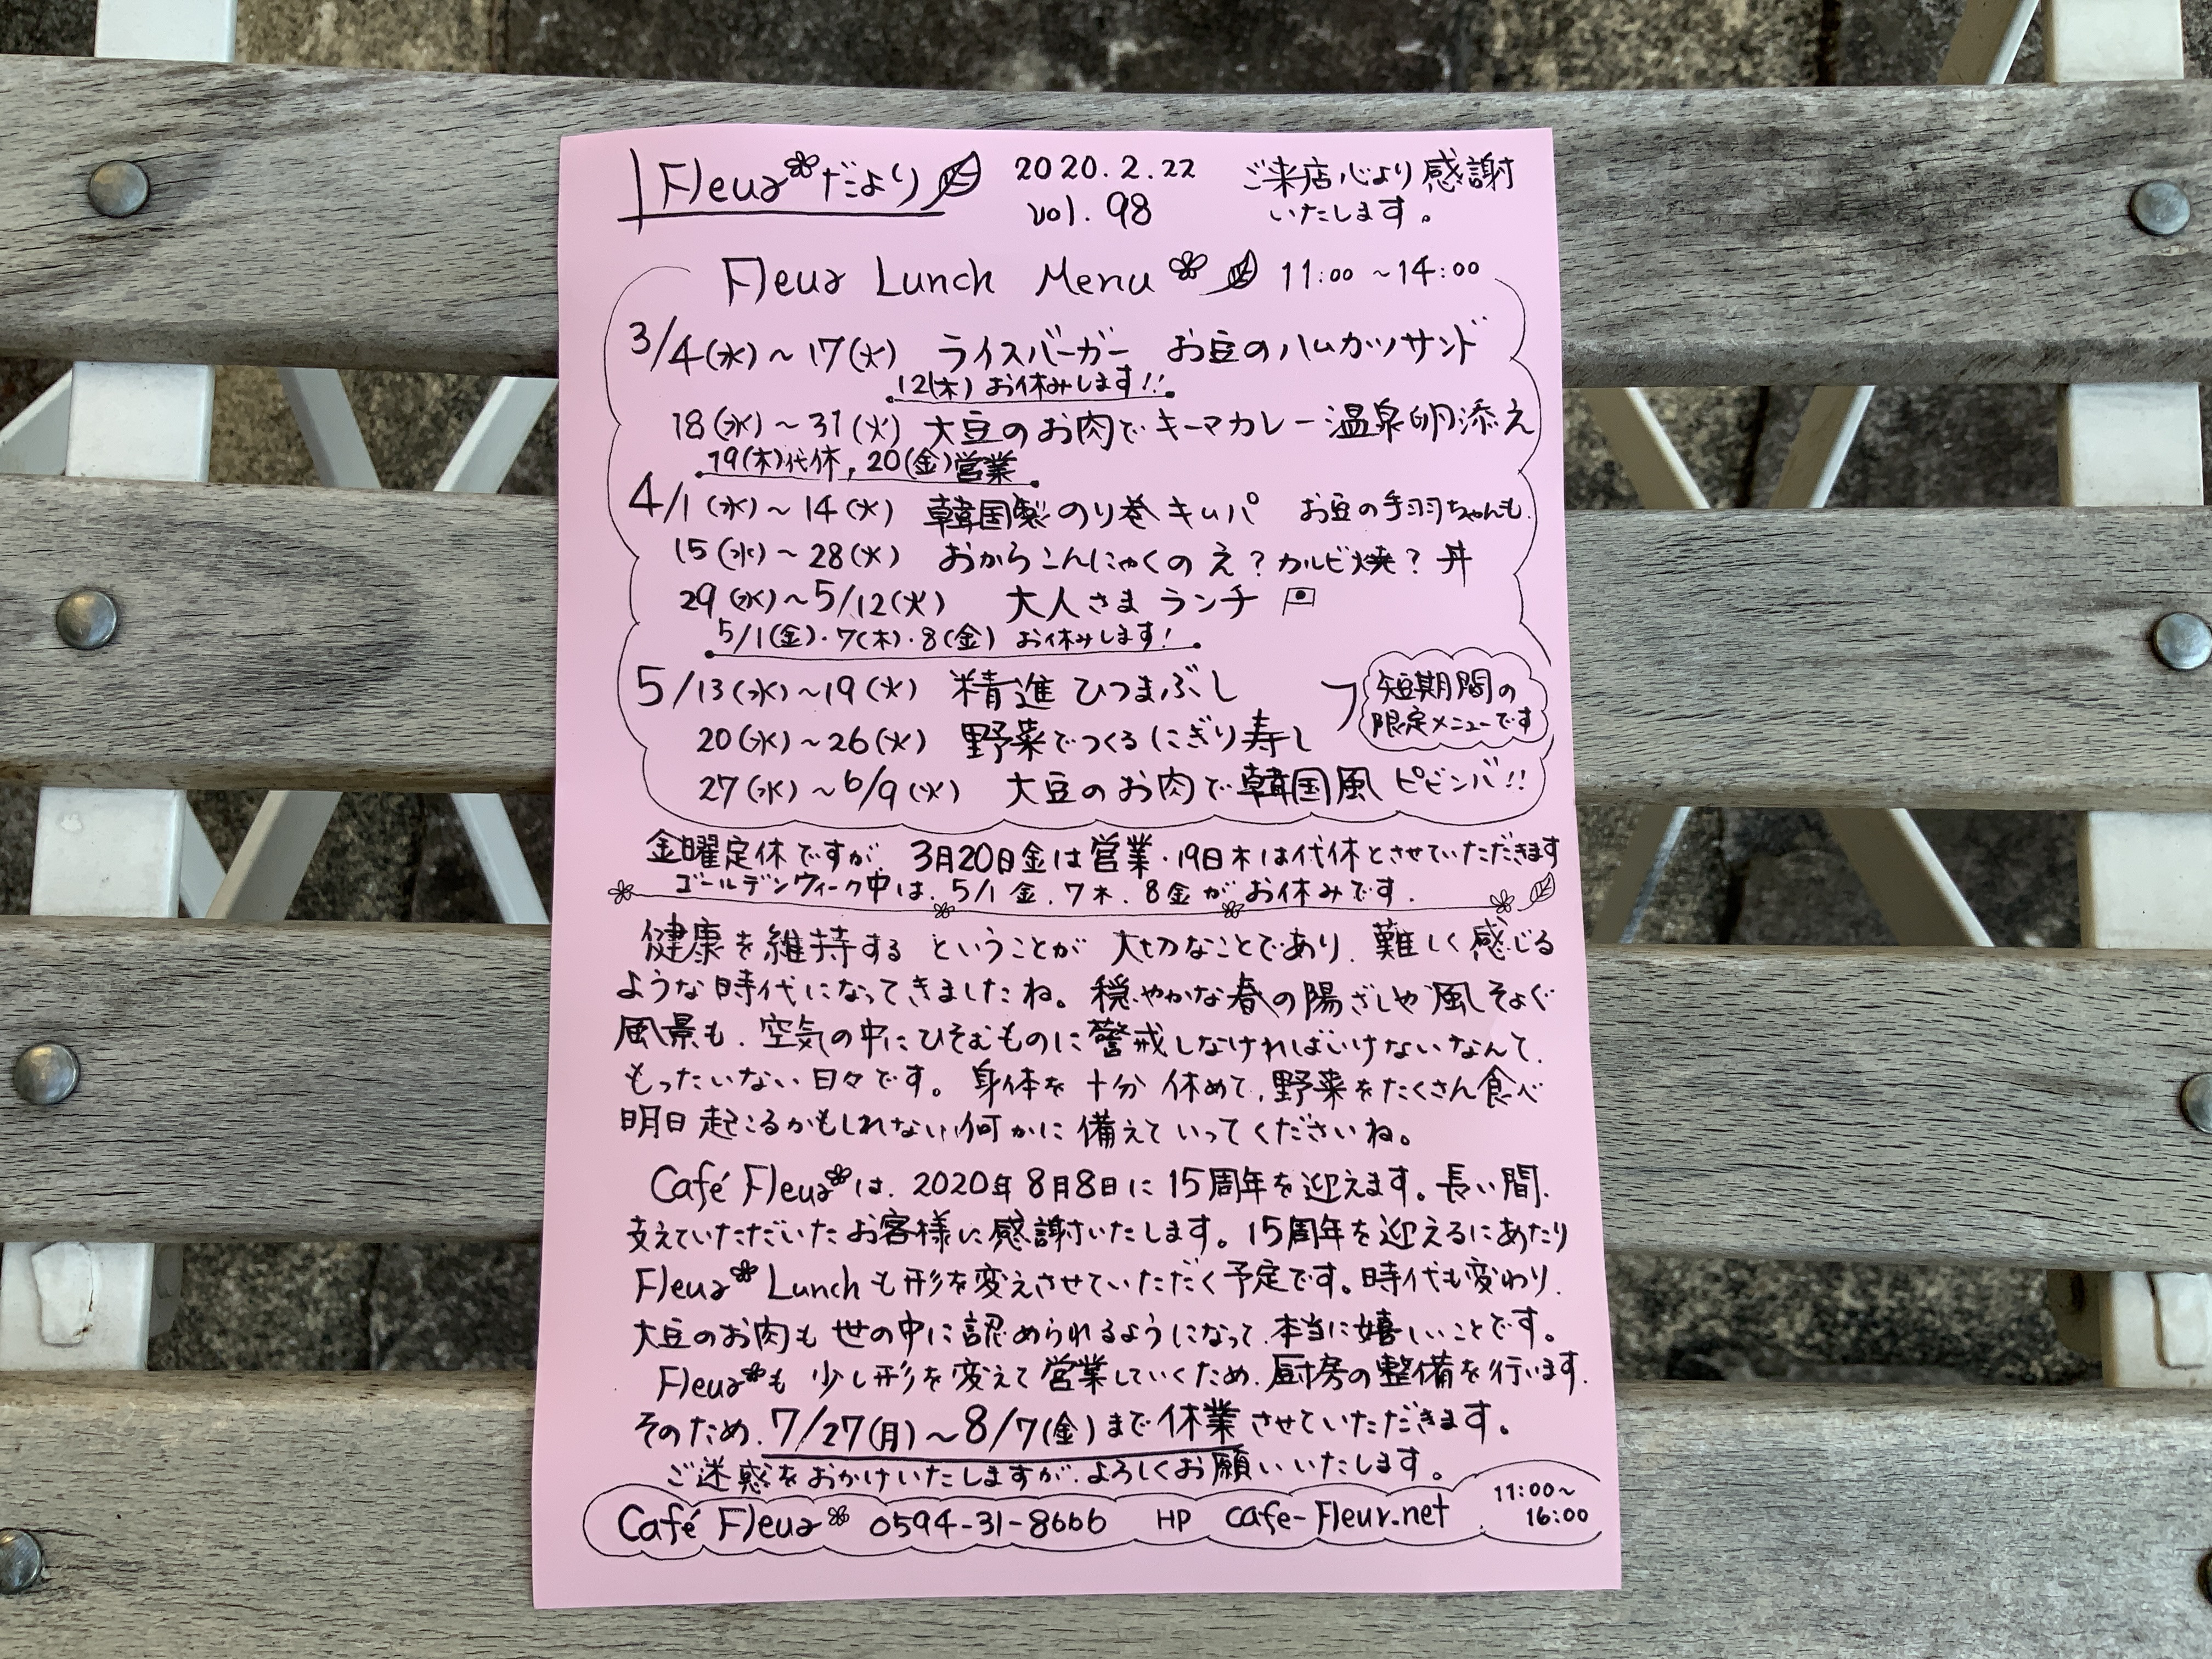 Fleurだより 2020.2.22 ご来店心より感謝
vol. 98 いたします。
Fleur Lunch Menu 11:00 ~14:00
3/4(水)~17(火) ライスバーガー お豆のハムカツサンド
12(木) お休みします!!
18(水)~31(火) 大豆のお肉でキーマカレー温泉卵添え
19(木)代休, 20(金)営業
4/1(水)~14(火) 韓国製のり巻キムパ お豆の手羽ちゃんも.
15(水)~28(火) おからこんにゃくのえ?カルビ焼?丼
29(水)~5/12(火) 大人さまランチ
5/1(金)・7(木)・8(金) お休みします!
5/13(水)~19(火) 精進ひつまぶし
短期間の
限定メニューです
20(水)~26(火) 野菜でつくるにぎり寿し
27(水)~6/9(火) 大豆のお肉で韓国風ピビンバ!!
金曜定休ですが、3月20日金は営業・19日木は代休とさせていただきます
ゴールデンウィーク中は、5/1金、7木、8金がお休みです.
健康を維持するということが大切なことであり、難しく感じる
ような時代になってきましたね。穏やかな春の陽ざしや風そよぐ
風景も、空気の中にひそむものに警戒しなければいけないなんて、
もったいない日々です。身体を十分休めて、野菜をたくさん食べ
明日起こるかもしれない何かに備えていってくださいね。
Café Fleurは、2020年8月8日に15周年を迎えます。長い間、
支えていただいたお客様に感謝いたします。15周年を迎えるにあたり
Fleur Lunchも形を変えさせていただく予定です。時代も変わり、
大豆のお肉も世の中に認められるようになって、本当に嬉しいことです。
Fleurも少し形を変えて営業していくため、厨房の整備を行います.
そのため、7/27(月)~8/7(金)まで休業させていただきます。
ご迷惑をおかけいたしますが、よろしくお願いいたします。
Café Fleur 0594-31-8666 HP cafe-Fleur.net 11:00~
16:00